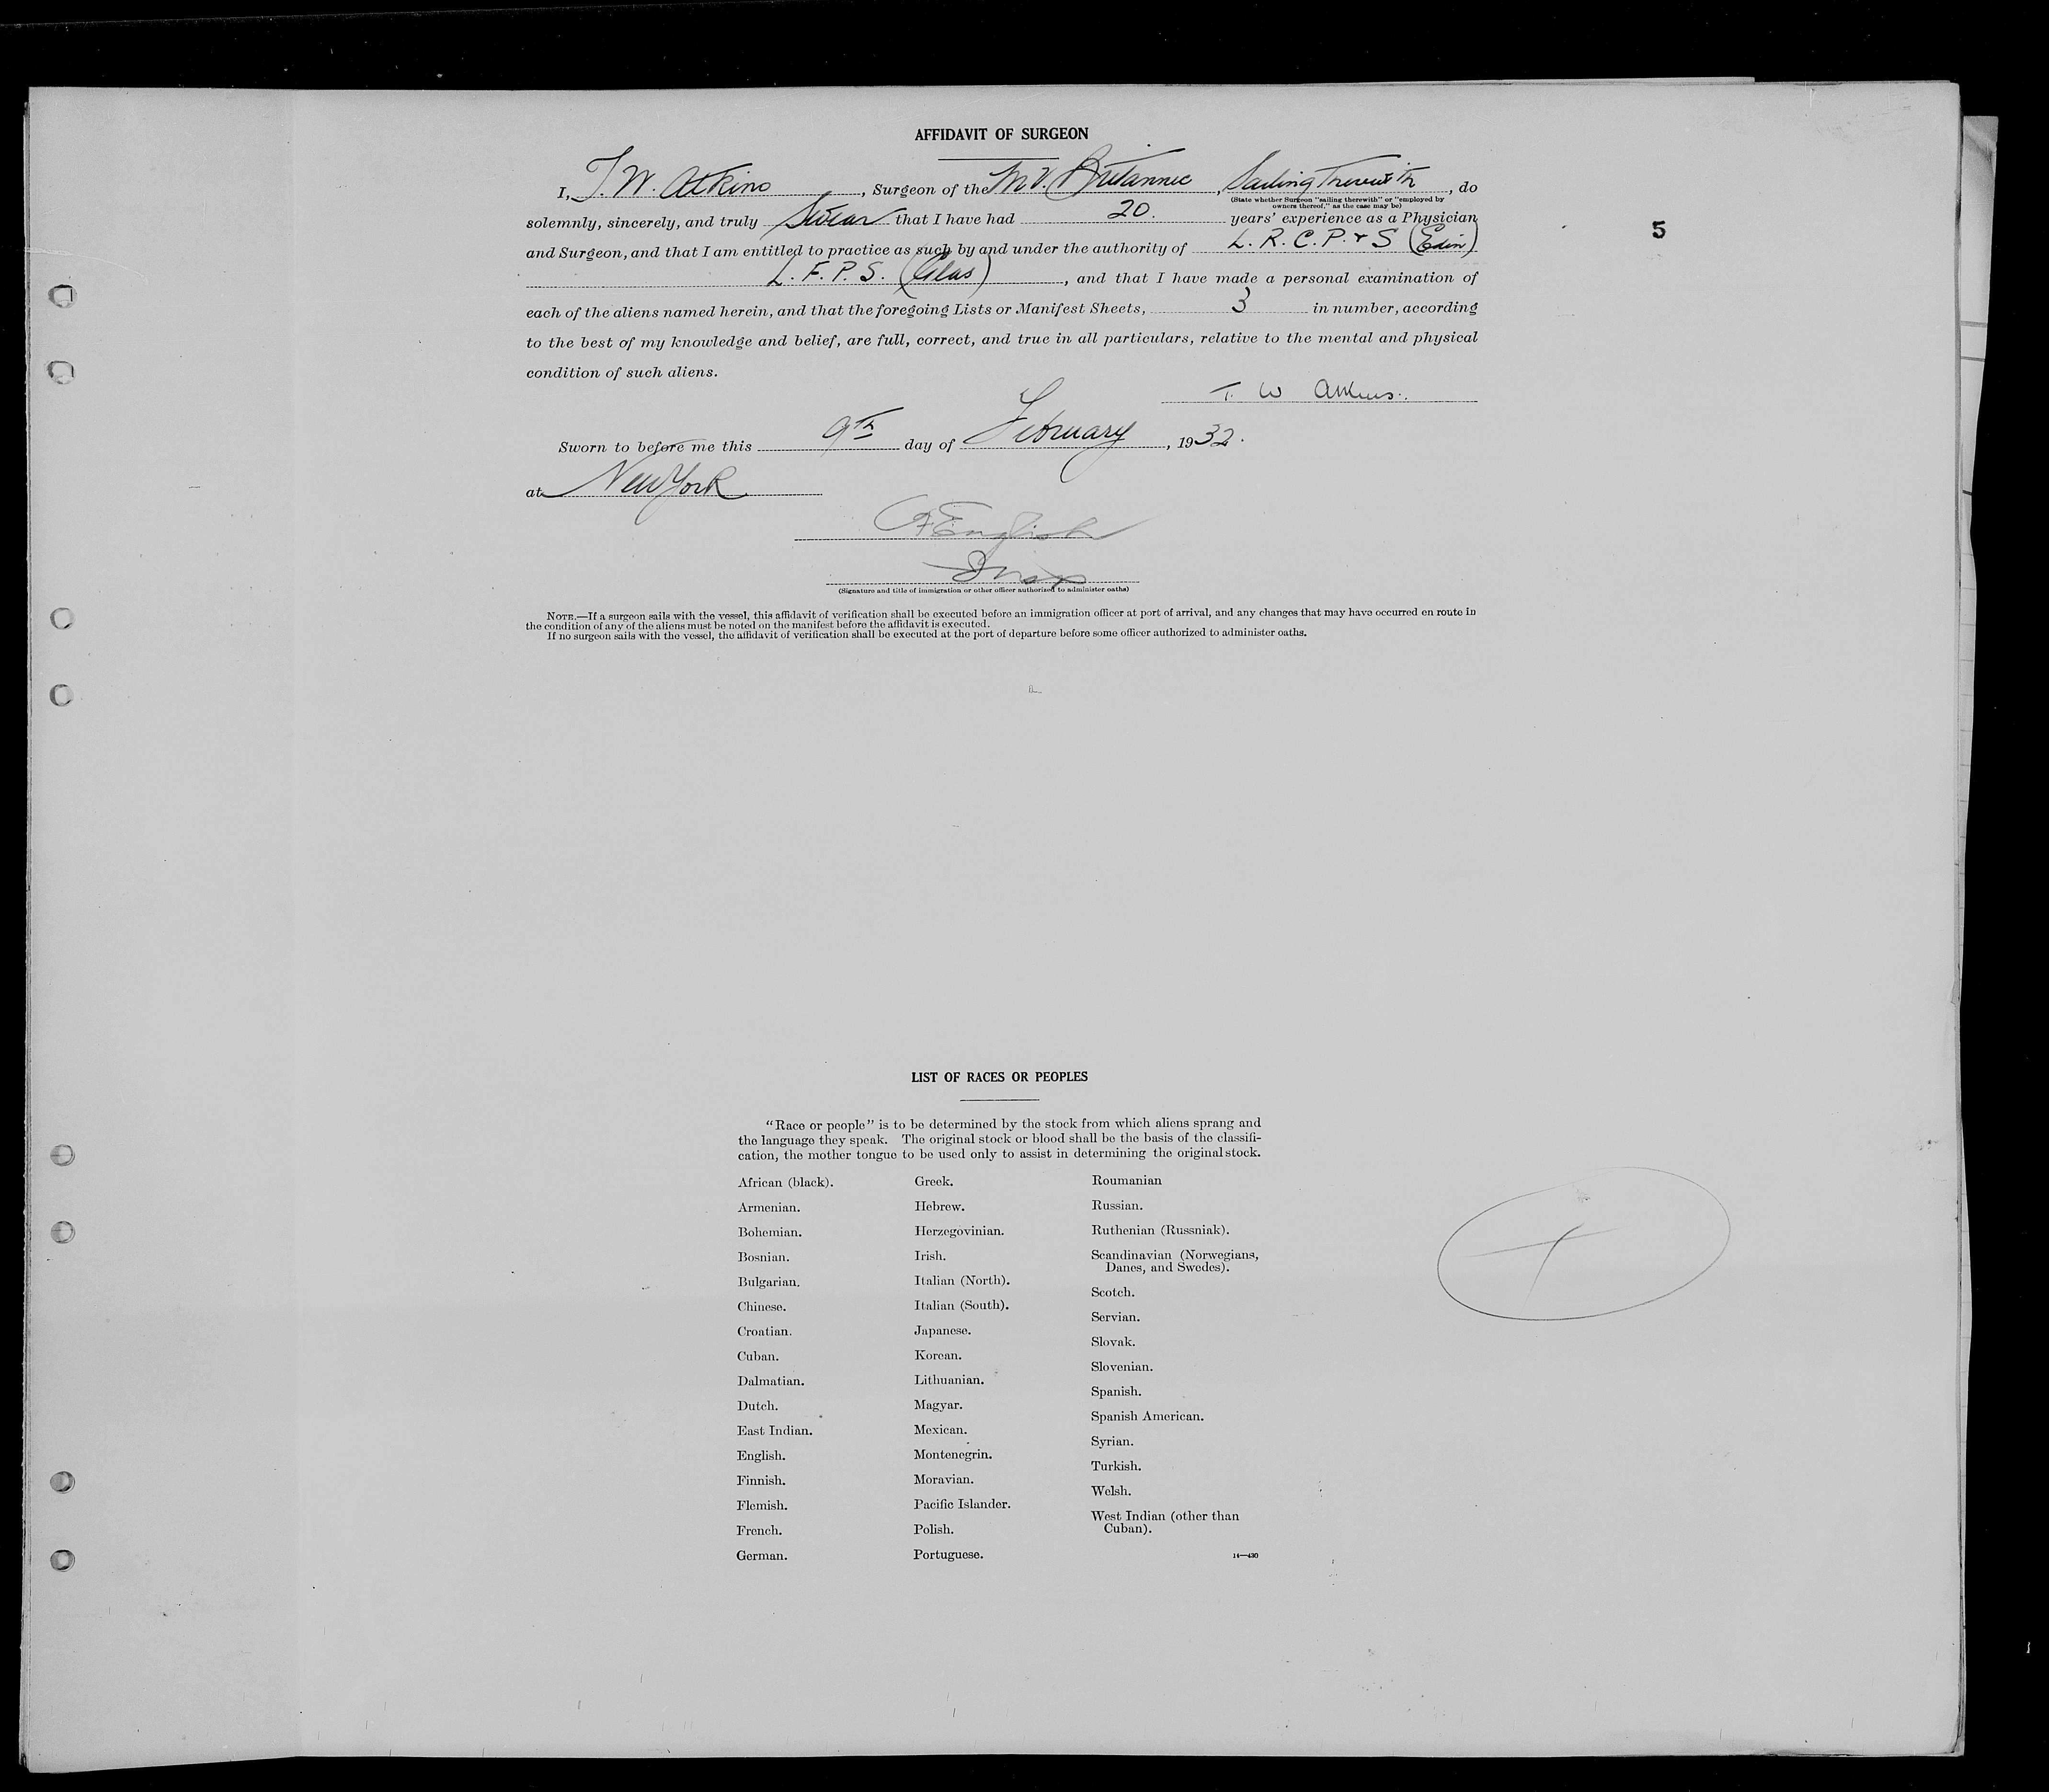 AFFIDAVIT OF SURGEON
I, T. W. Atkins, Surgeon of the M.V. Britannic, Sailing Therewith, do
(State whether Surgeon "sailing therewith" or "employed by
owners thereof," as the case may be)
solemnly, sincerely, and truly Swear that I have had 20. years' experience as a Physician
5
and Surgeon, and that I am entitled to practice as such by and under the authority of L. R. C. P. & S (Edin)
L. F. P. S. (Glas), and that I have made a personal examination of
each of the aliens named herein, and that the foregoing Lists or Manifest Sheets, 3 in number, according
to the best of my knowledge and belief, are full, correct, and true in all particulars, relative to the mental and physical
condition of such aliens.
T. W Atkins.
Sworn to before me this 9th day of February, 1932.
at New York
English
(Signature and title of immigration or other officer authorized to administer oaths)
NOTE.—If a surgeon sails with the vessel, this affidavit of verification shall be executed before an immigration officer at port of arrival, and any changes that may have occurred en route in
the condition of any of the aliens must be noted on the manifest before the affidavit is executed.
If no surgeon sails with the vessel, the affidavit of verification shall be executed at the port of departure before some officer authorized to administer oaths.
LIST OF RACES OR PEOPLES
"Race or people" is to be determined by the stock from which aliens sprang and
the language they speak. The original stock or blood shall be the basis of the classifi-
cation, the mother tongue to be used only to assist in determining the original stock.
African (black).
Armenian.
Bohemian.
Bosnian.
Bulgarian.
Chinese.
Croatian.
Cuban.
Dalmatian.
Dutch.
East Indian.
English.
Finnish.
Flemish.
French.
German.
Greek.
Hebrew.
Herzegovinian.
Irish.
Italian (North).
Italian (South).
Japanese.
Korean.
Lithuanian.
Magyar.
Mexican.
Montenegrin.
Moravian.
Pacific Islander.
Polish.
Portuguese.
Roumanian
Russian.
Ruthenian (Russniak).
Scandinavian (Norwegians,
Danes, and Swedes).
Scotch.
Servian.
Slovak.
Slovenian.
Spanish.
Spanish American.
Syrian.
Turkish.
Welsh.
West Indian (other than
Cuban).
14—430